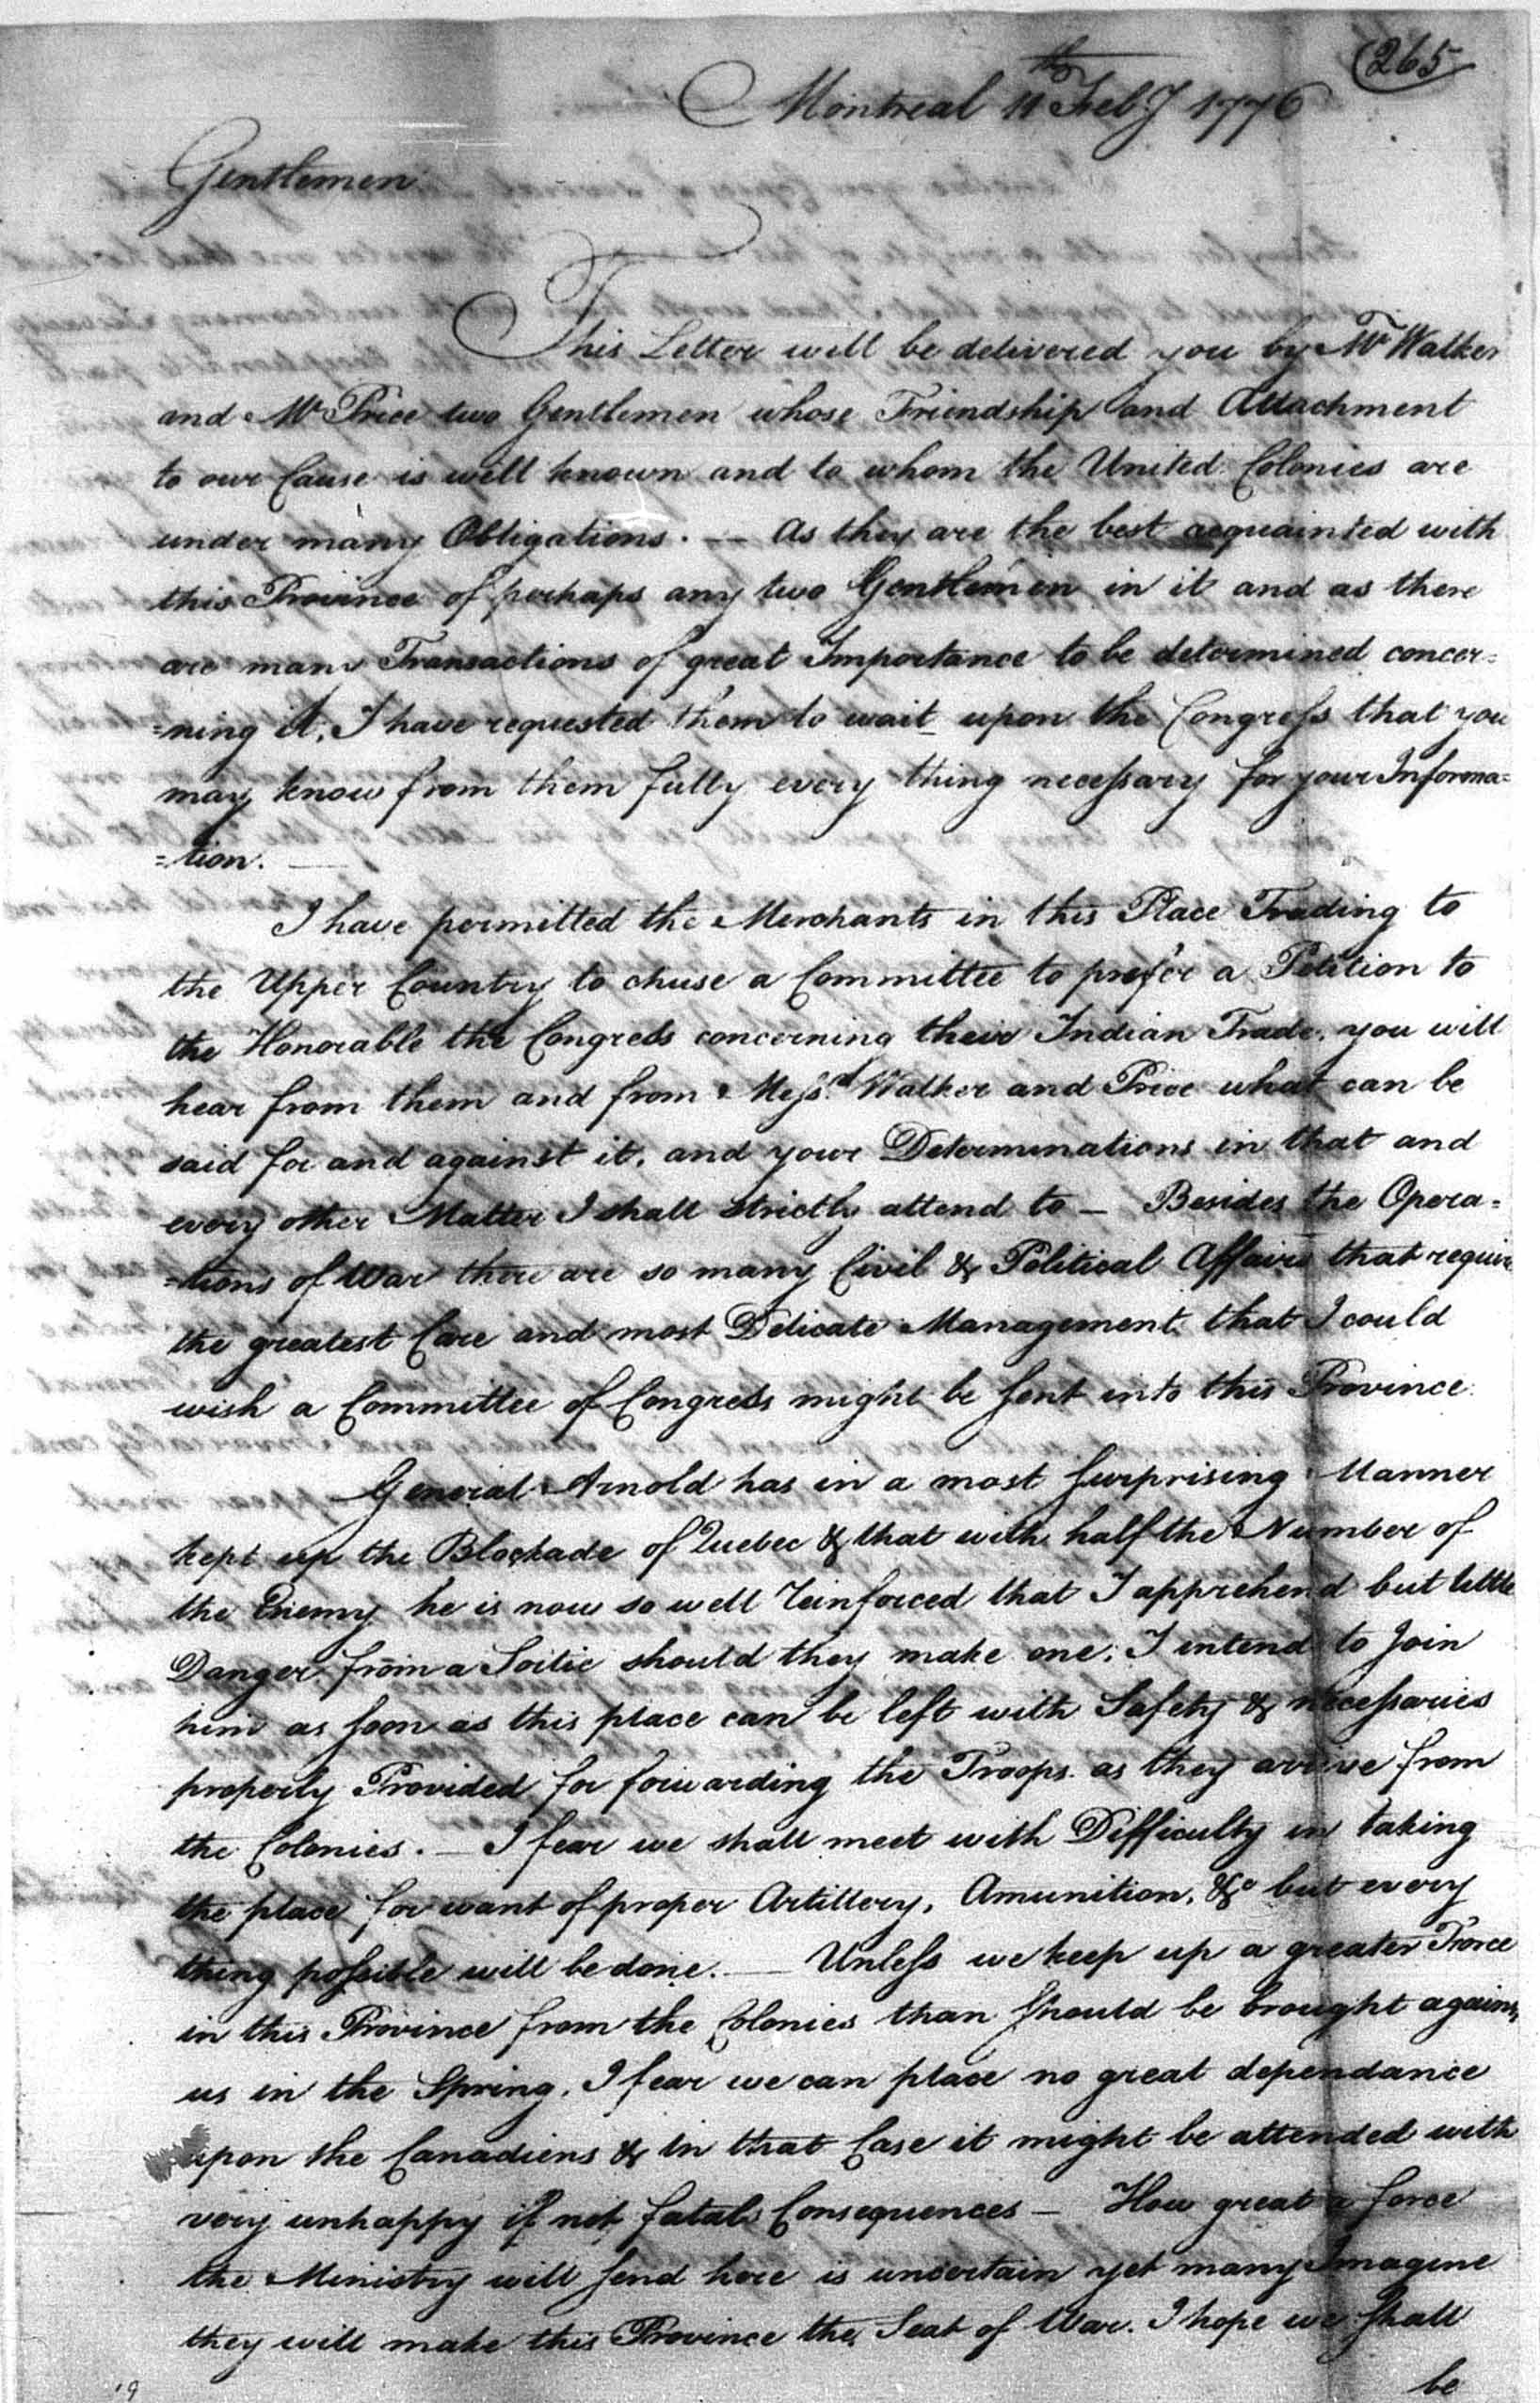 (265
Montreal 11th Feby 1776
Gentlemen
This Letter will be delivered you by Mr Walker
and Mr Price two Gentlemen whose Friendship and Attachment
to our Cause is well known and to whom the United Colonies are
under many Obligations. — As they are the best acquainted with
this Province of perhaps any two Gentlemen in it and as there
are many Transactions of great Importance to be determined concer=
=ning it, I have requested them to wait upon the Congress that you
may know from them fully every thing necessary for your Informa=
=tion. —
I have permitted the Merchants in this Place Trading to
the Upper Country to chuse a Committee to prefer a Petition to
the Honorable the Congress concerning their Indian Trade. you will
hear from them and from Messrs Walker and Price what can be
said for and against it. and your Determinations in that and
every other Matter I shall strictly attend to — Besides the Opera=
=tions of War there are so many Civil & Political Affairs that require
the greatest Care and most Delicate Management that I could
wish a Committee of Congress might be sent into this Province.
General Arnold has in a most surprising Manner
kept up the Blockade of Quebec & that with half the Number of
the Enemy he is now so well reinforced that I apprehend but little
Danger from a Soitie should they make one; I intend to Join
him as soon as this place can be left with Safety & necessaries
properly Provided for forwarding the Troops as they arrive from
the Colonies. — I fear we shall meet with Difficulty in taking
the place for want of proper Artillery, Amunition, &c but every
thing possible will be done. — Unless we keep up a greater Force
in this Province from the Colonies than should be brought against
us in the Spring. I fear we can place no great dependance
upon the Canadiens & in that Case it might be attended with
very unhappy if not fatal Consequences — How great a force
the Ministry will send here is uncertain yet many Imagine
they will make this Province the Seat of War. I hope we shall
be
19